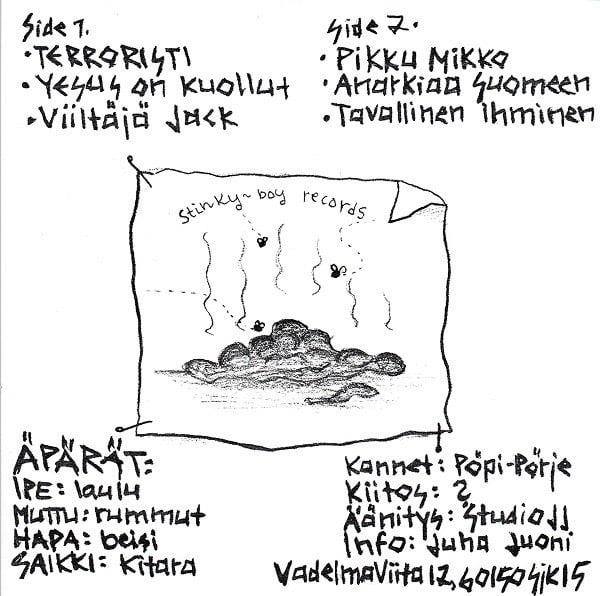 Side 1.
• TERRORISTI
• Yesus on kuollut
• Viiltäjä Jack
Side 2.
• Pikku Mikko
• Anarkiaa Suomeen
• Tavallinen ihminen
Stinky-boy records
ÄPÄRÄT:
IPE: laulu
MUTTU: rummut
HAPA: beisi
SAIKKI: kitara
Kannet: Pöpi-Pörje
Kiitos: ?
Äänitys: Studio JJ
Info: Juha Juoni
VadelmaViita 12, 60150 SJK 15